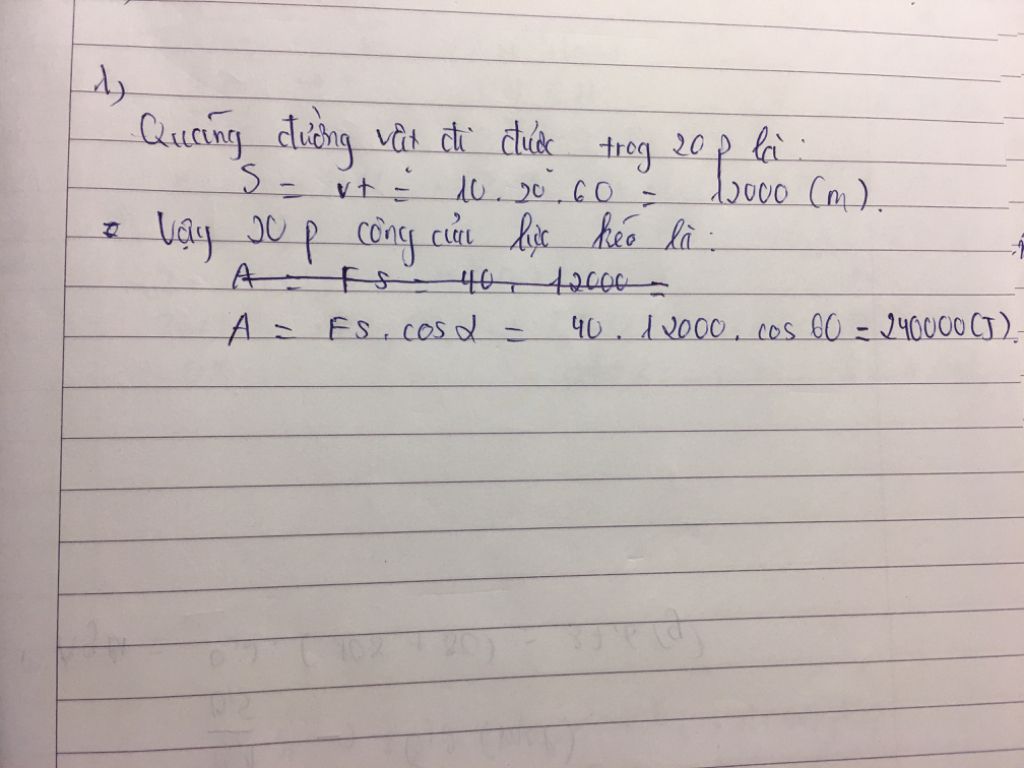 1)
Quãng đường vật đi được trog 20 p là :
S = vt = 10.20.60 = 12000 (m).
Vậy 20 p công của lực kéo là :
A = Fs = 40. 12000 =
A = Fs. cos α = 40. 12000. cos 60 = 240000 (J).